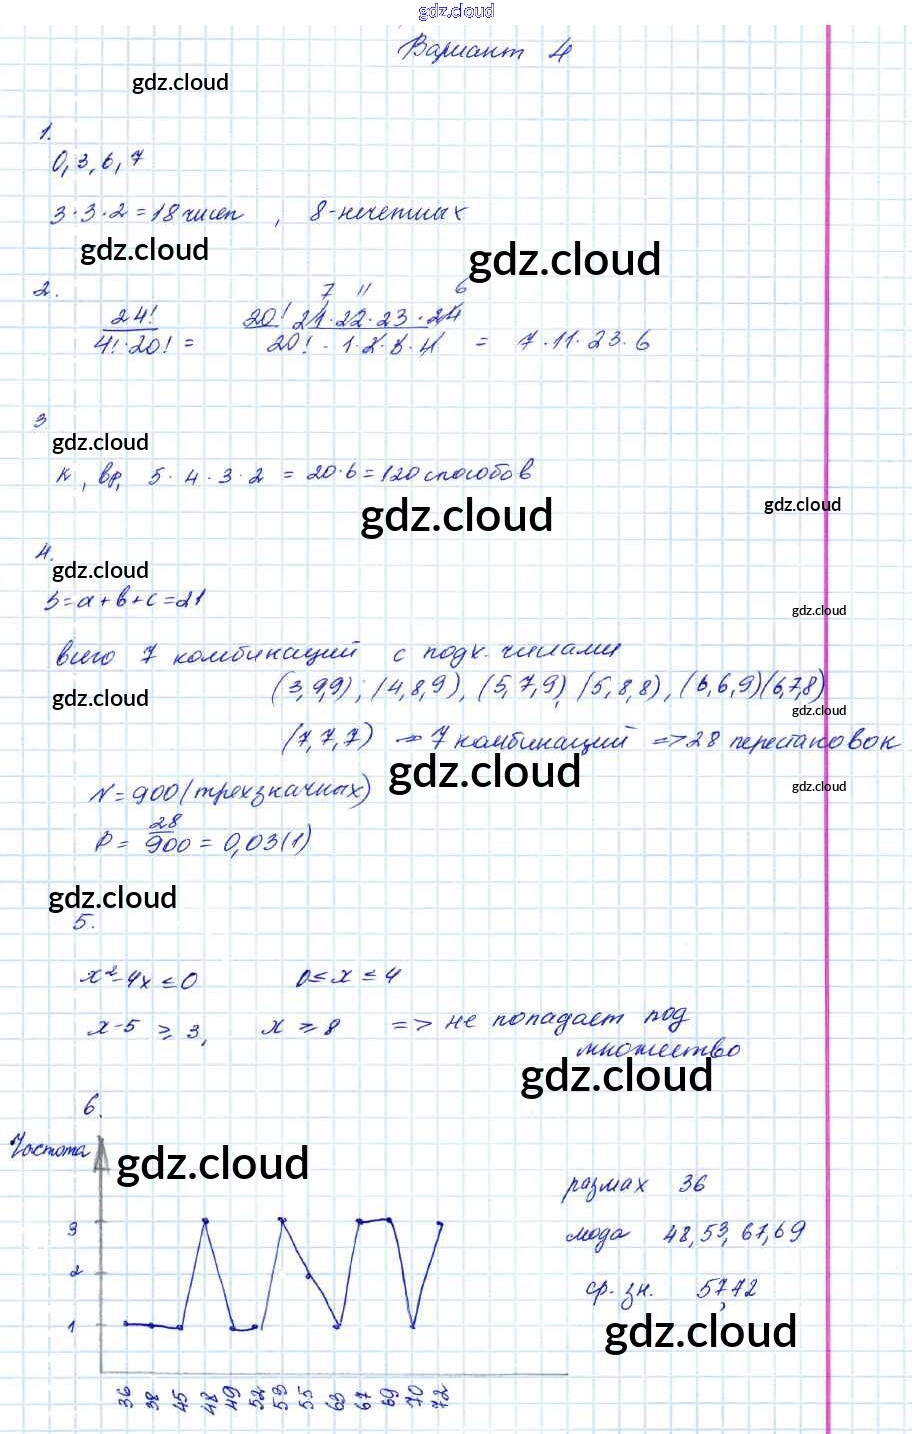 gdz.cloud
Вариант 4
gdz.cloud
1.
0, 3, 6, 7
3·3·2=18 чисел , 8-нечетных
gdz.cloud
gdz.cloud
2.
7 11 6
24! 20! 21·22·23·24
4!·20! = 20! · 1·2·3·4 = 7·11·23·6
3
gdz.cloud
к, вр, 5·4·3·2 = 20·6=120 способов
gdz.cloud
gdz.cloud
4.
gdz.cloud
S=a+b+c=21
gdz.cloud
всего 7 комбинаций с подх. числами
(3,9,9); (4,8,9), (5,7,9), (5,8,8), (6,6,9)(6,7,8)
gdz.cloud
gdz.cloud
(7,7,7) => 7 комбинаций => 28 перестановок
gdz.cloud
gdz.cloud
N=900 (трехзначных)
28
P = 900 = 0,03(1)
gdz.cloud
5.
x²-4x ≤ 0 0≤x≤4
x-5 ≥ 3, x ≥ 8 => не попадает под
множество
gdz.cloud
6.
Частота
gdz.cloud
размах 36
3
мода 48, 53, 67, 69
2
ср. зн. 57,42
1
gdz.cloud
36 38 45 48 49 52 53 55 63 67 69 70 72